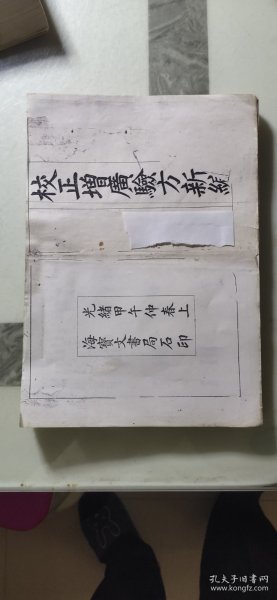 校正增廣驗方新編
光緒甲午仲春上
海寶文書局石印
孔夫子旧书网
www.kongfz.com